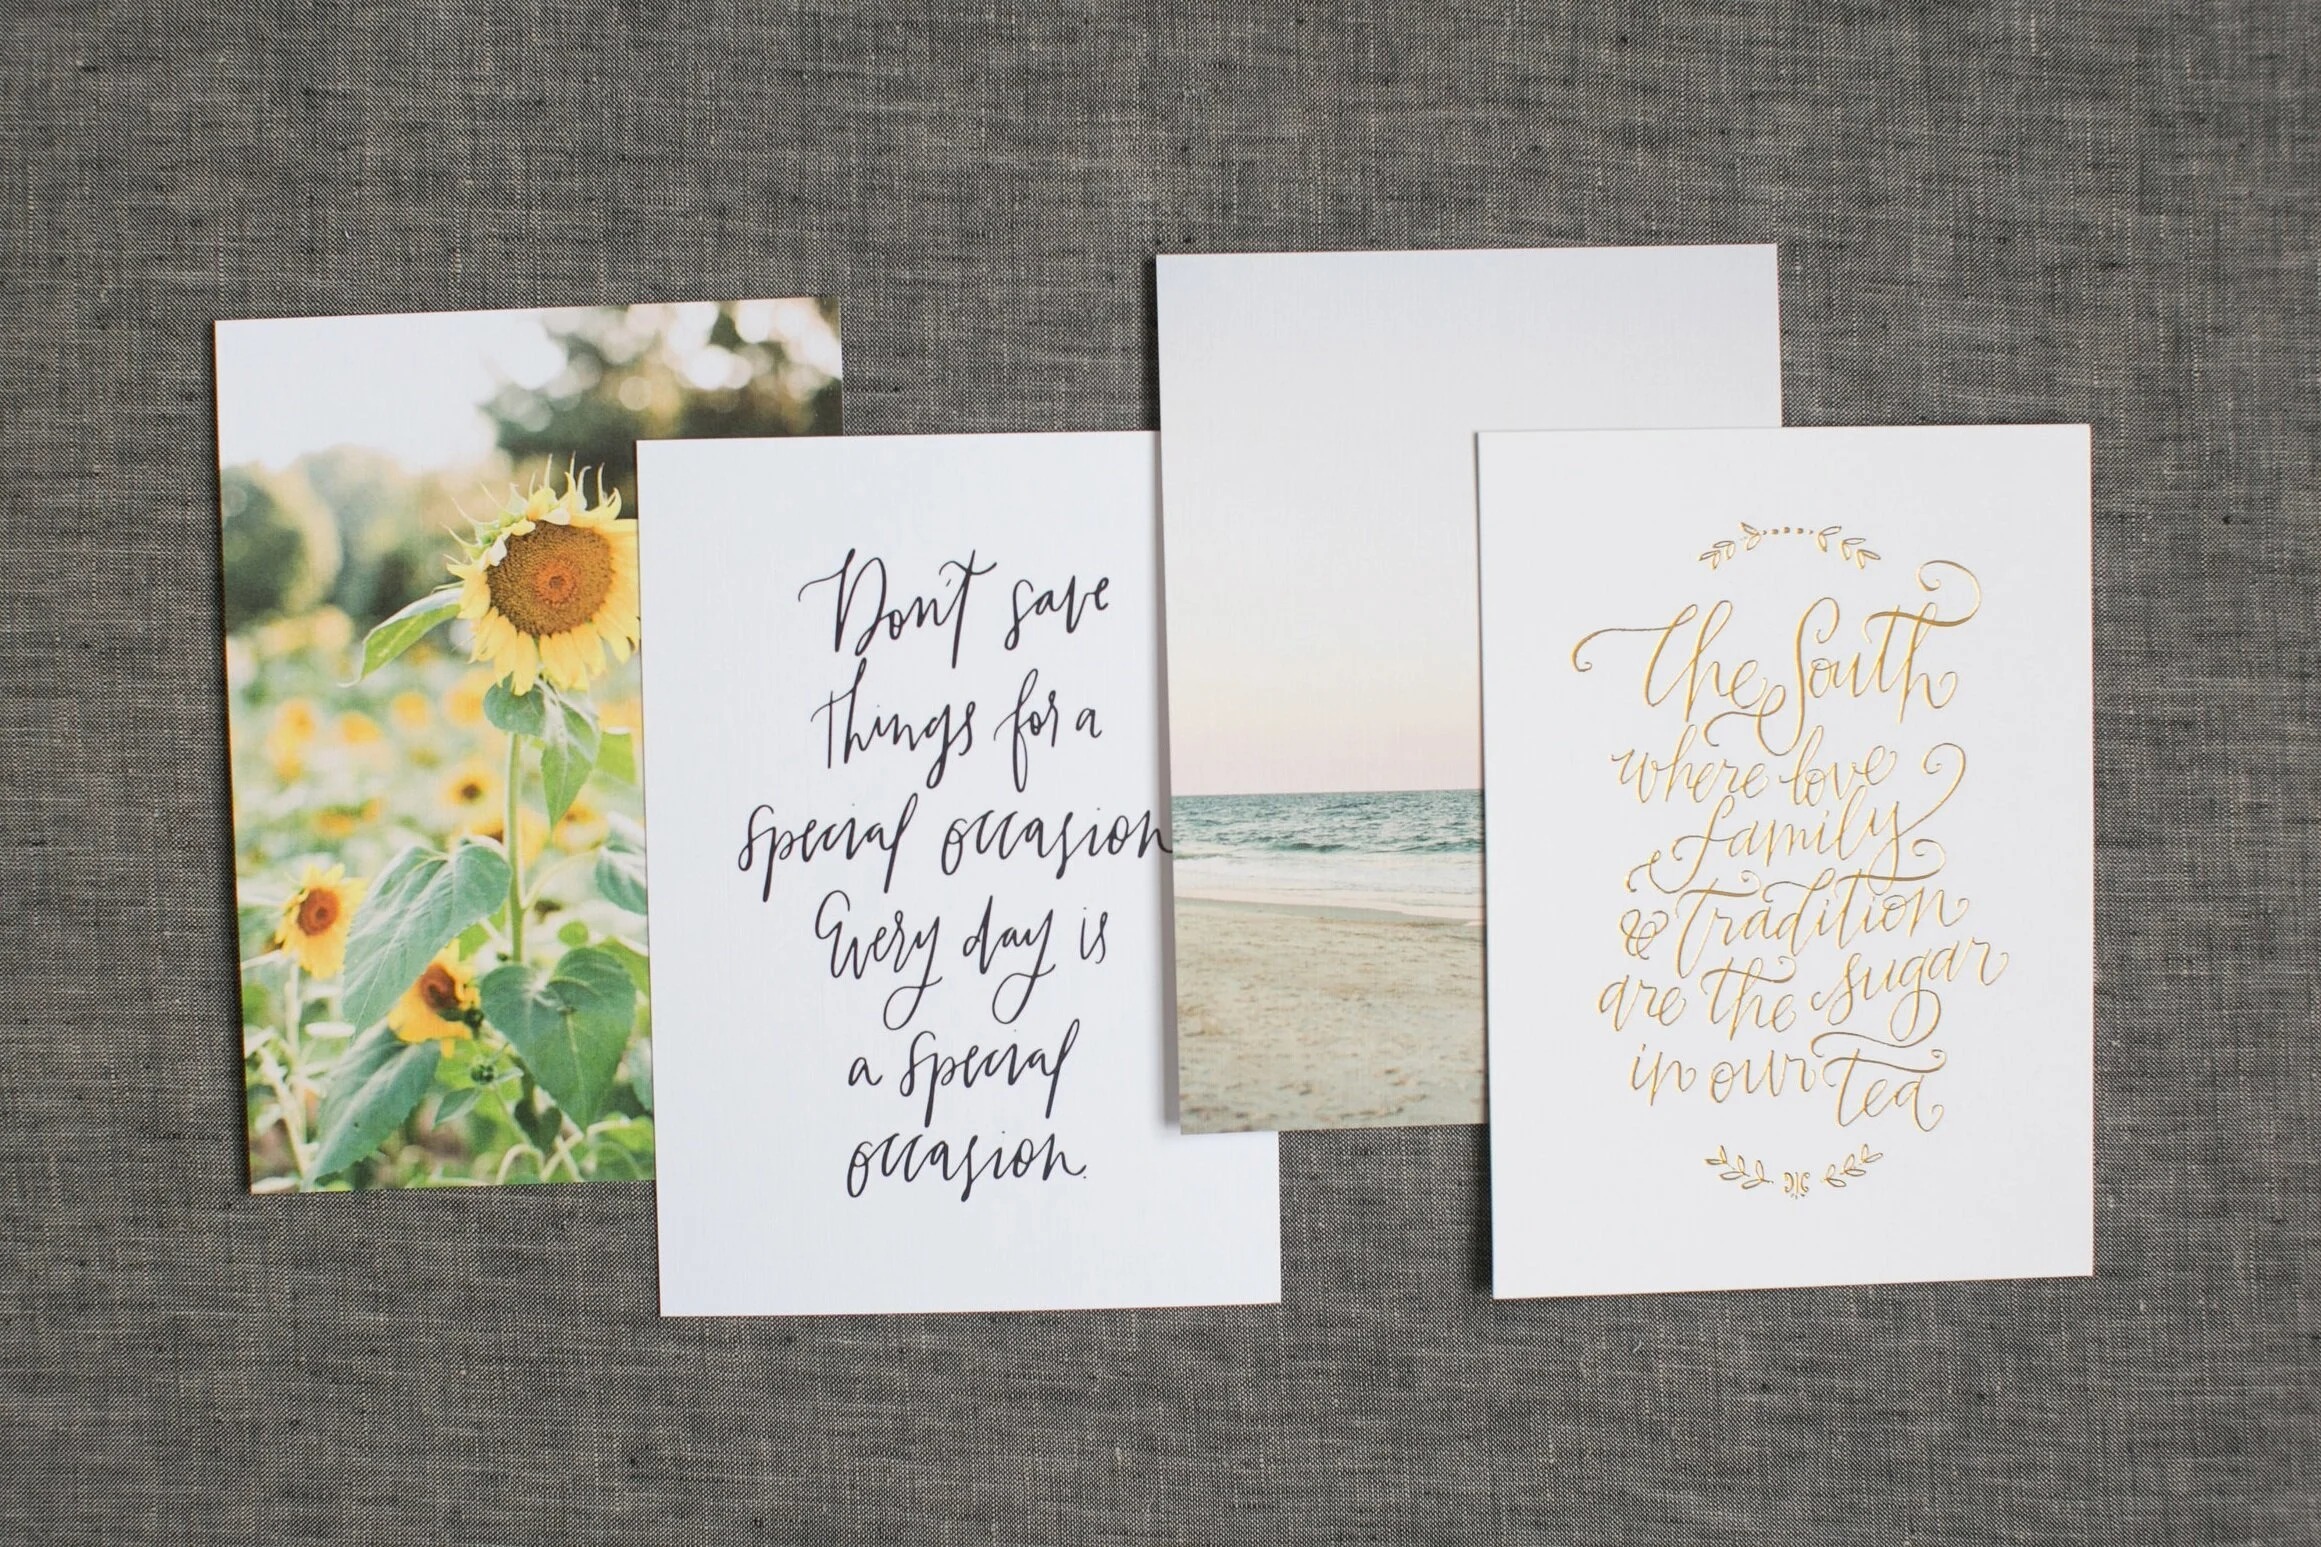 Don't save
things for a
special occasion
Every day is
a special
occasion.
The South
where love
family
& tradition
are the sugar
in our tea